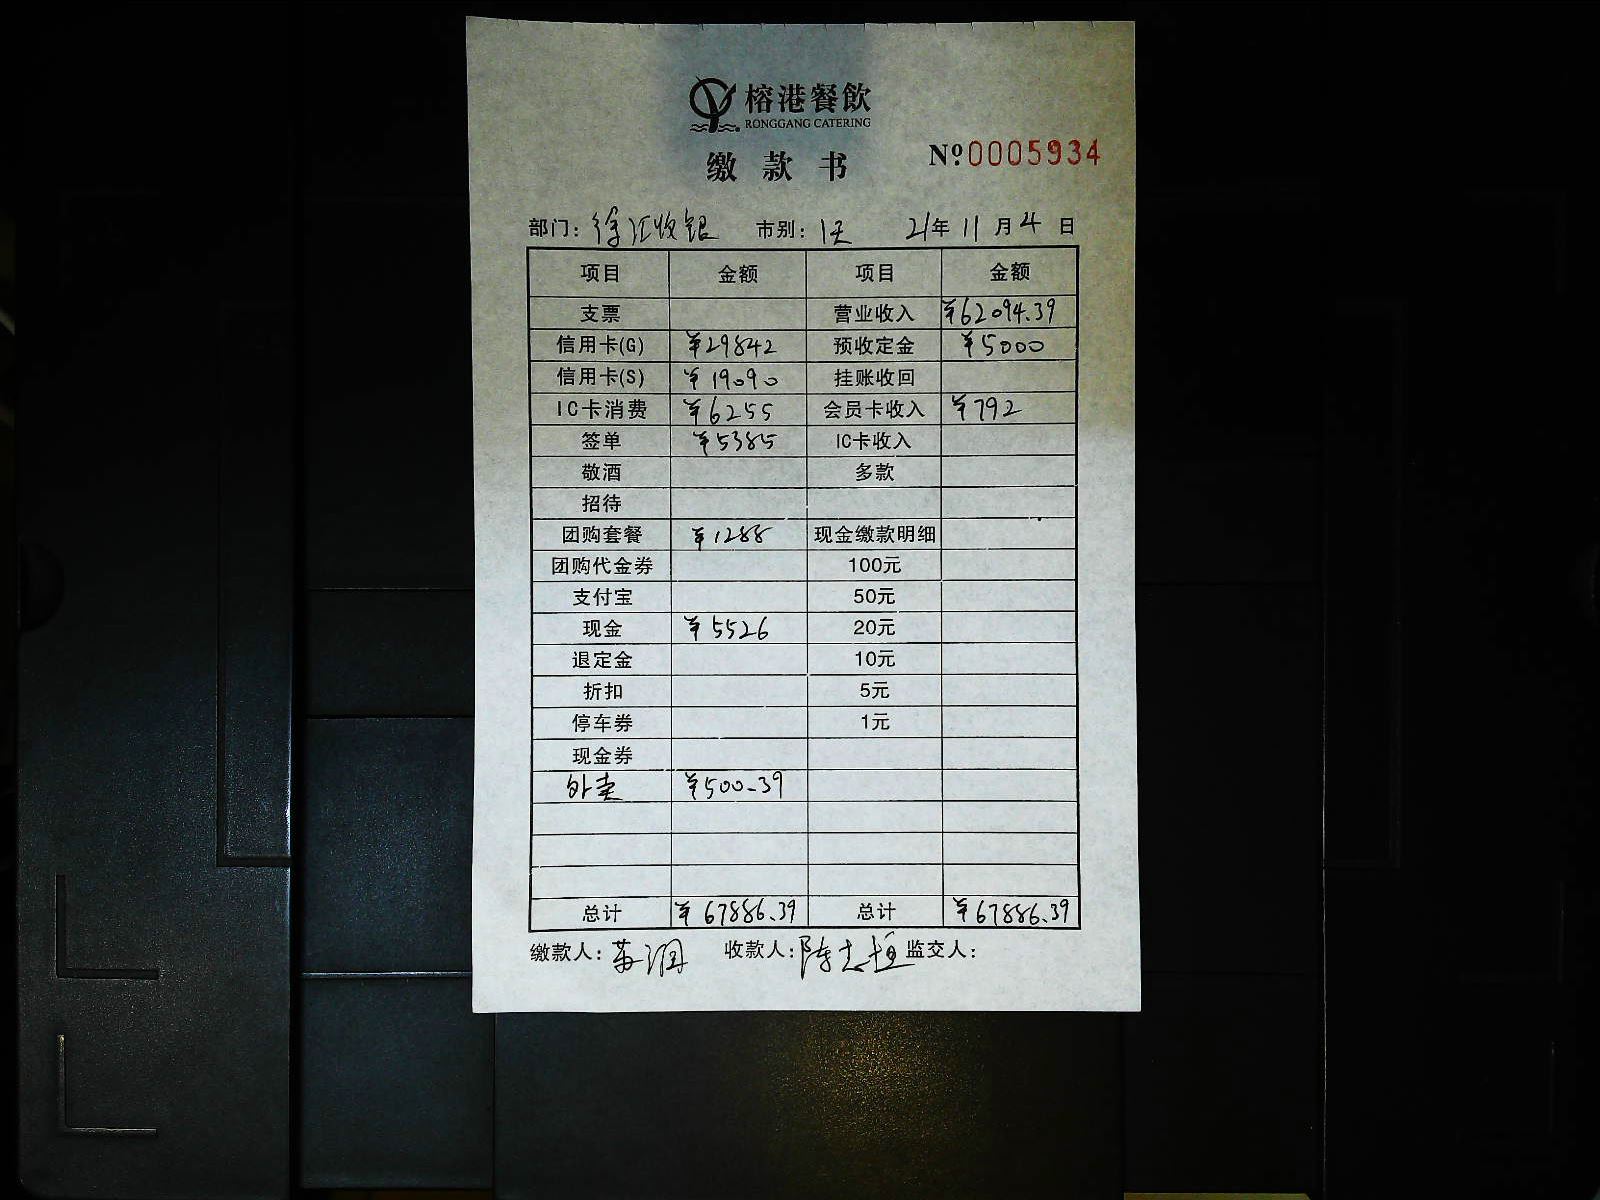 榕港餐飲
RONGGANG CATERING
缴款书
Nº 0005934
部门: 徐汇收银 市别: 1天 21年11月4日
项目 金额 项目 金额
支票 营业收入 ¥62094.39
信用卡(G) ¥29842 预收定金 ¥5000
信用卡(S) ¥19090 挂账收回
IC卡消费 ¥6255 会员卡收入 ¥792
签单 ¥5385 IC卡收入
敬酒 多款
招待
团购套餐 ¥1288 现金缴款明细
团购代金券 100元
支付宝 50元
现金 ¥5526 20元
退定金 10元
折扣 5元
停车券 1元
现金券
外卖 ¥500.39
总计 ¥67886.39 总计 ¥67886.39
缴款人: 苏润 收款人: 陈志恒 监交人: